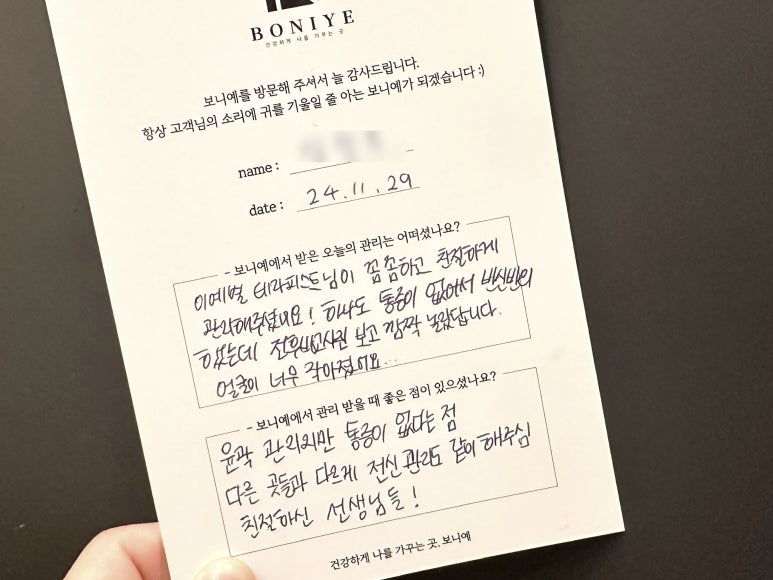 BONIYE
건강하게 나를 가꾸는 곳
보니예를 방문해 주셔서 늘 감사드립니다.
항상 고객님의 소리에 귀를 기울일 줄 아는 보니예가 되겠습니다 :)
name :
date : 24.11.29
- 보니예에서 받은 오늘의 관리는 어떠셨나요? -
이예별 테라피스트님이 꼼꼼하고 친절하게
관리해주셨네요! 하나도 통증이 없어서 반신반의
했는데 전후비교사진 보고 깜짝 놀랐답니다.
얼굴이 너무 작아졌어요...
- 보니예에서 관리 받을 때 좋은 점이 있으셨나요? -
윤곽 관리지만 통증이 없다는 점
다른 곳들과 다르게 전신 관리도 같이 해주심
친절하신 선생님들!
건강하게 나를 가꾸는 곳, 보니예